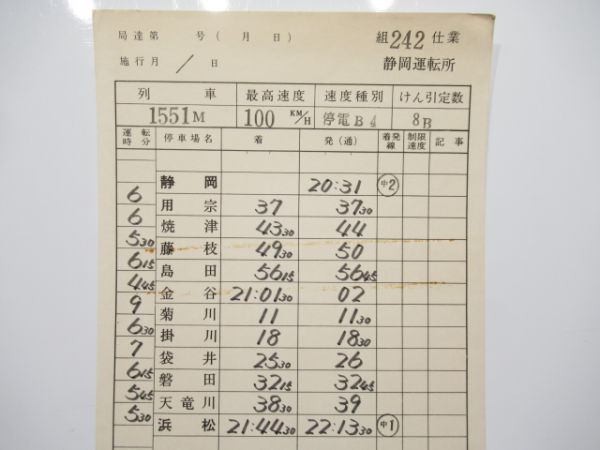 局達第 号( 月 日) 組242仕業
施行月 / 日 静岡運転所
列車 最高速度 速度種別 けん引定数
1551M 100 KM/H 停電B4 8B
運転時分 停車場名 着 発(通) 着発線 制限速度 記事
静岡 20:31 中2
6 用宗 37 37 30
6 焼津 43 30 44
5 30 藤枝 49 30 50
6 15 島田 56 15 56 45
4 45 金谷 21:01 30 02
9 菊川 11 11 30
6 30 掛川 18 18 30
7 袋井 25 30 26
6 15 磐田 32 15 32 45
5 45 天竜川 38 30 39
5 30 浜松 21:44 30 22:13 30 中1